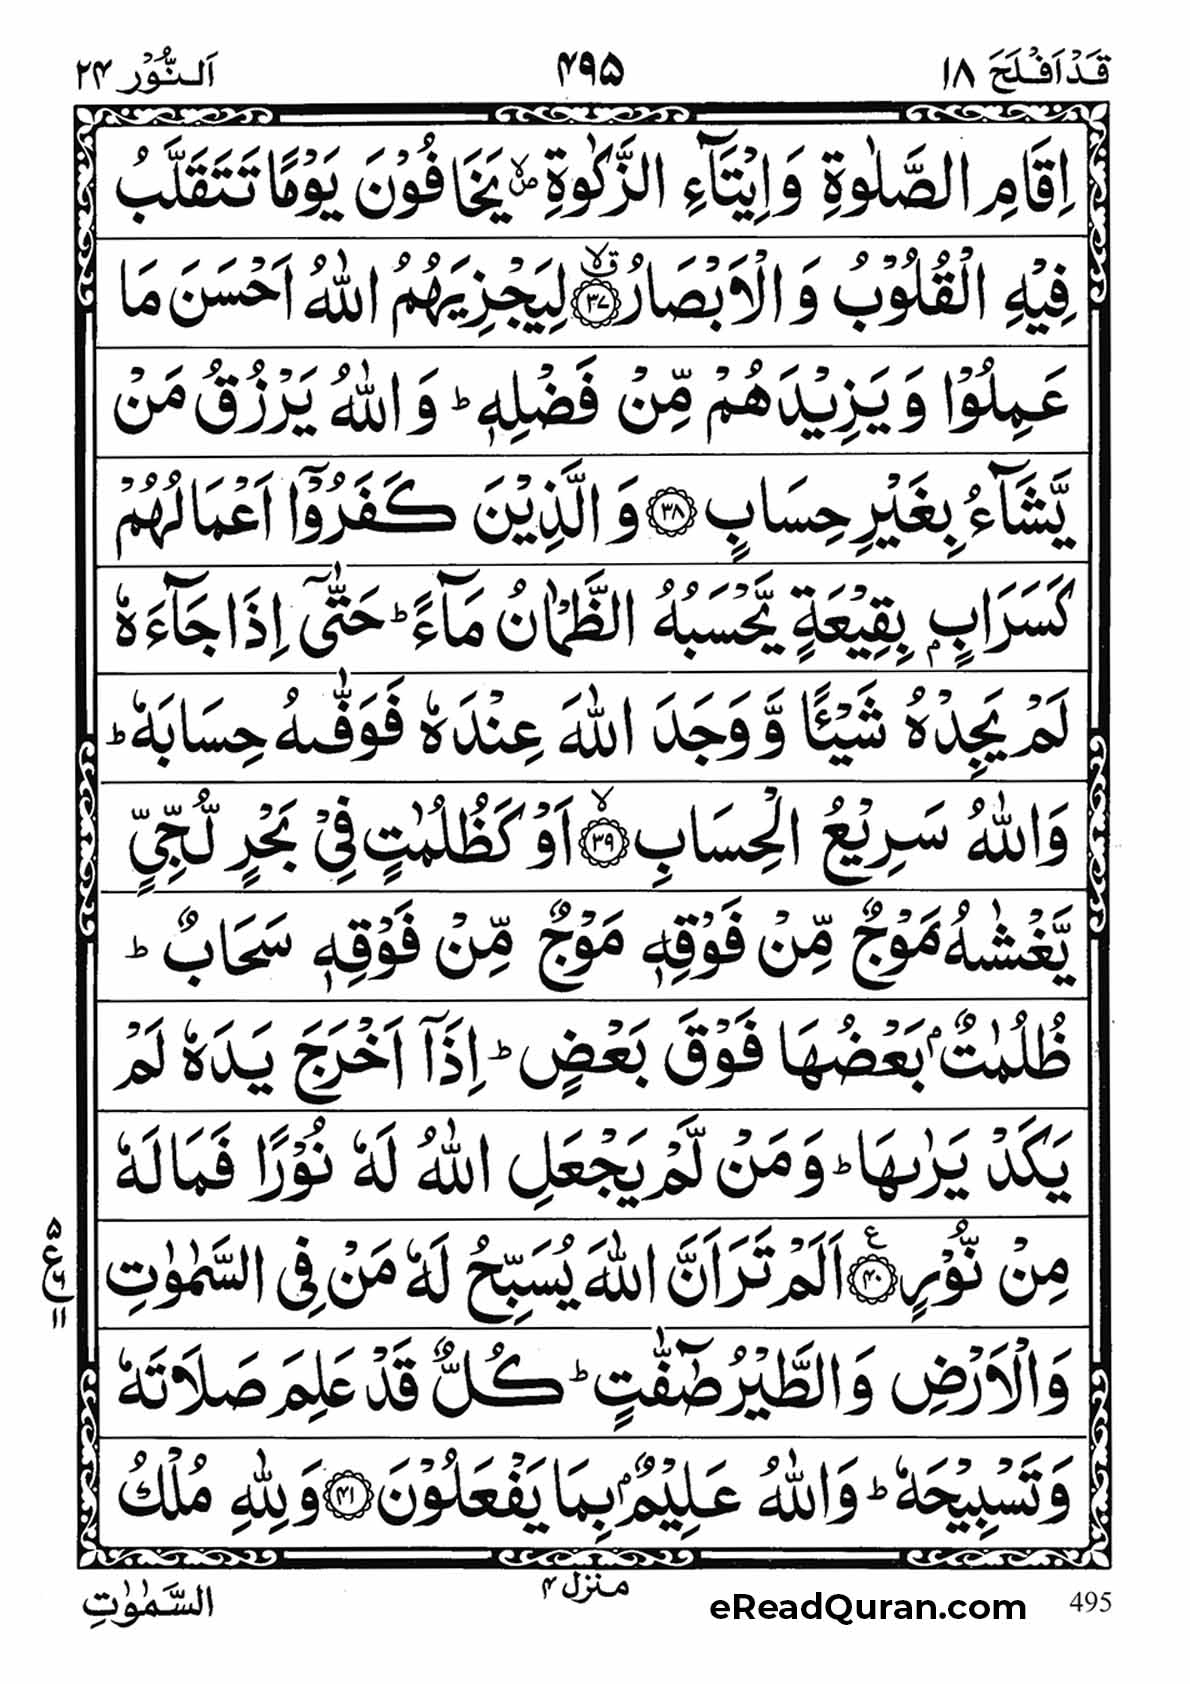 قَدْ اَفْلَحَ ۱۸
۴۹۵
اَلنُّوْر ۲۴
اِقَامِ الصَّلٰوةِ وَاِیْتَآءِ الزَّكٰوةِ ۪ۙ یَخَافُوْنَ یَوْمًا تَتَقَلَّبُ
فِیْهِ الْقُلُوْبُ وَ الْاَبْصَارُ ۳۷ ق لا لِیَجْزِیَهُمُ اللّٰهُ اَحْسَنَ مَا
عَمِلُوْا وَ یَزِیْدَهُمْ مِّنْ فَضْلِهٖ ؕ وَ اللّٰهُ یَرْزُقُ مَنْ
یَّشَآءُ بِغَیْرِ حِسَابٍ ۳۸ وَ الَّذِیْنَ كَفَرُوْۤا اَعْمَالُهُمْ
كَسَرَابٍۭ بِقِیْعَةٍ یَّحْسَبُهُ الظَّمْاٰنُ مَآءً ؕ حَتّٰۤی اِذَا جَآءَهٗ
لَمْ یَجِدْهُ شَیْـًٔا وَّ وَجَدَ اللّٰهَ عِنْدَهٗ فَوَفّٰىهُ حِسَابَهٗ ؕ
وَاللّٰهُ سَرِیْعُ الْحِسَابِ ۳۹ لا اَوْ كَظُلُمٰتٍ فِیْ بَحْرٍ لُّجِّیٍّ
یَّغْشٰىهُ مَوْجٌ مِّنْ فَوْقِهٖ مَوْجٌ مِّنْ فَوْقِهٖ سَحَابٌ ؕ
ظُلُمٰتٌۢ بَعْضُهَا فَوْقَ بَعْضٍ ؕ اِذَاۤ اَخْرَجَ یَدَهٗ لَمْ
یَكَدْ یَرٰىهَا ؕ وَمَنْ لَّمْ یَجْعَلِ اللّٰهُ لَهٗ نُوْرًا فَمَا لَهٗ
مِنْ نُّوْرٍ ۴۰ ع اَلَمْ تَرَ اَنَّ اللّٰهَ یُسَبِّحُ لَهٗ مَنْ فِی السَّمٰوٰتِ
۵ ع ۶ ۱۱
وَالْاَرْضِ وَالطَّیْرُ صٰٓفّٰتٍ ؕ كُلٌّ قَدْ عَلِمَ صَلَاتَهٗ
وَ تَسْبِیْحَهٗ ؕ وَاللّٰهُ عَلِیْمٌۢ بِمَا یَفْعَلُوْنَ ۴۱ وَ لِلّٰهِ مُلْكُ
السَّمٰوٰتِ
منزل ۴
eReadQuran.com
495